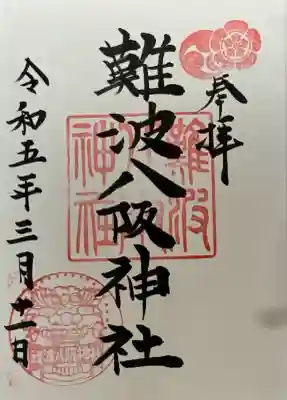 奉拝
難波八阪神社
令和五年三月十一日
難波
神社